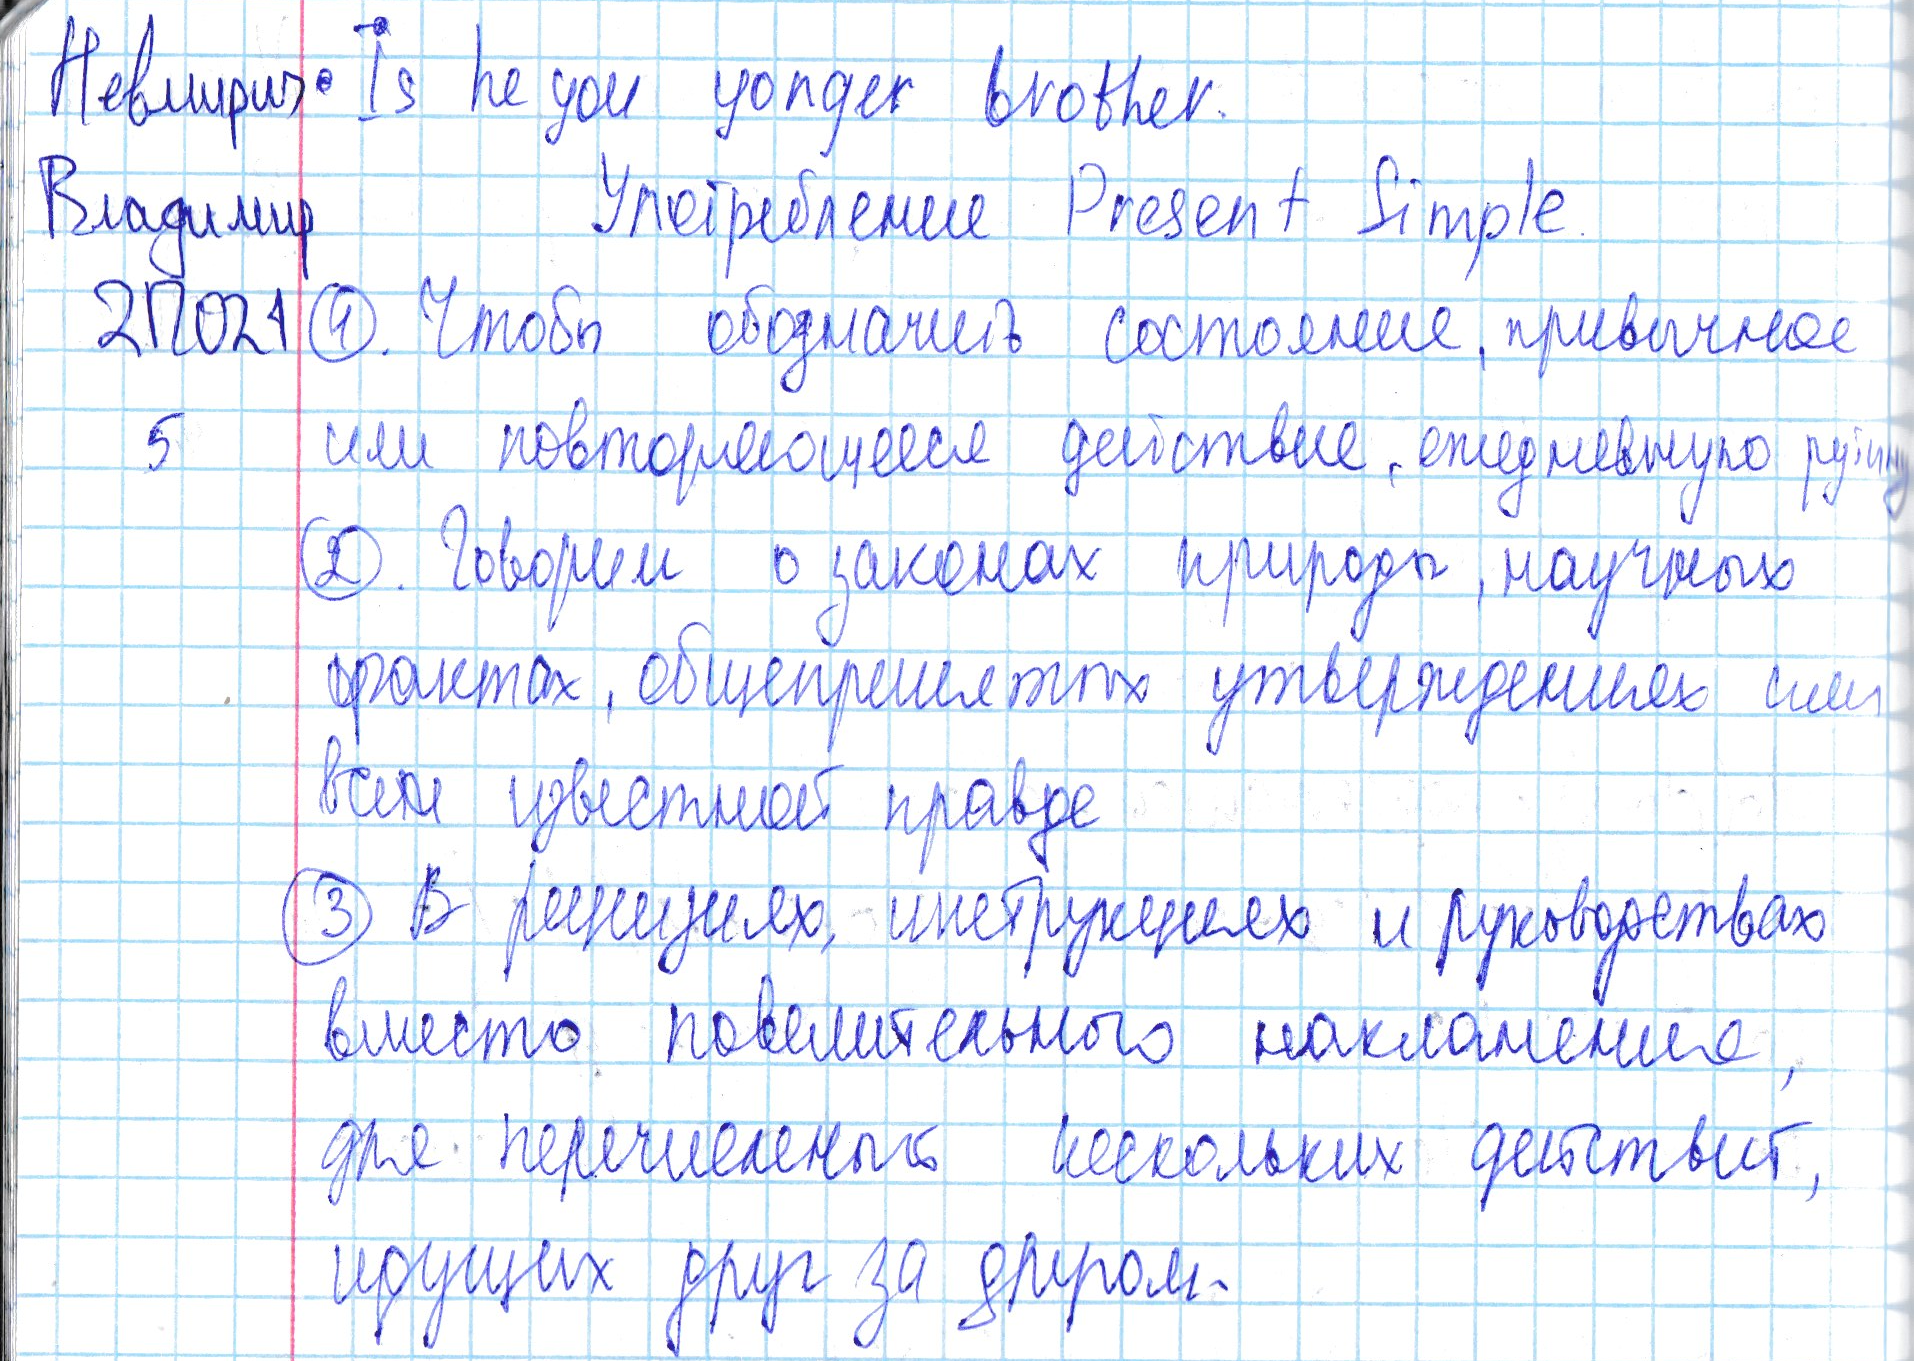 Невмирич • Is he you yonger brother.
Владимир Употребление Present Simple.
2П021 ①. Чтобы обозначить состояние, привычное
5 или повторяющееся действие, ежедневную рутину
②. Говорим о законах природы, научных
фактах, общепринятых утверждениях или
всем известной правде
③ В рецепиях, инструкциях и руководствах
вместо повелительного накланение,
для перечисленый нескольких действий,
идущих друг за другом.